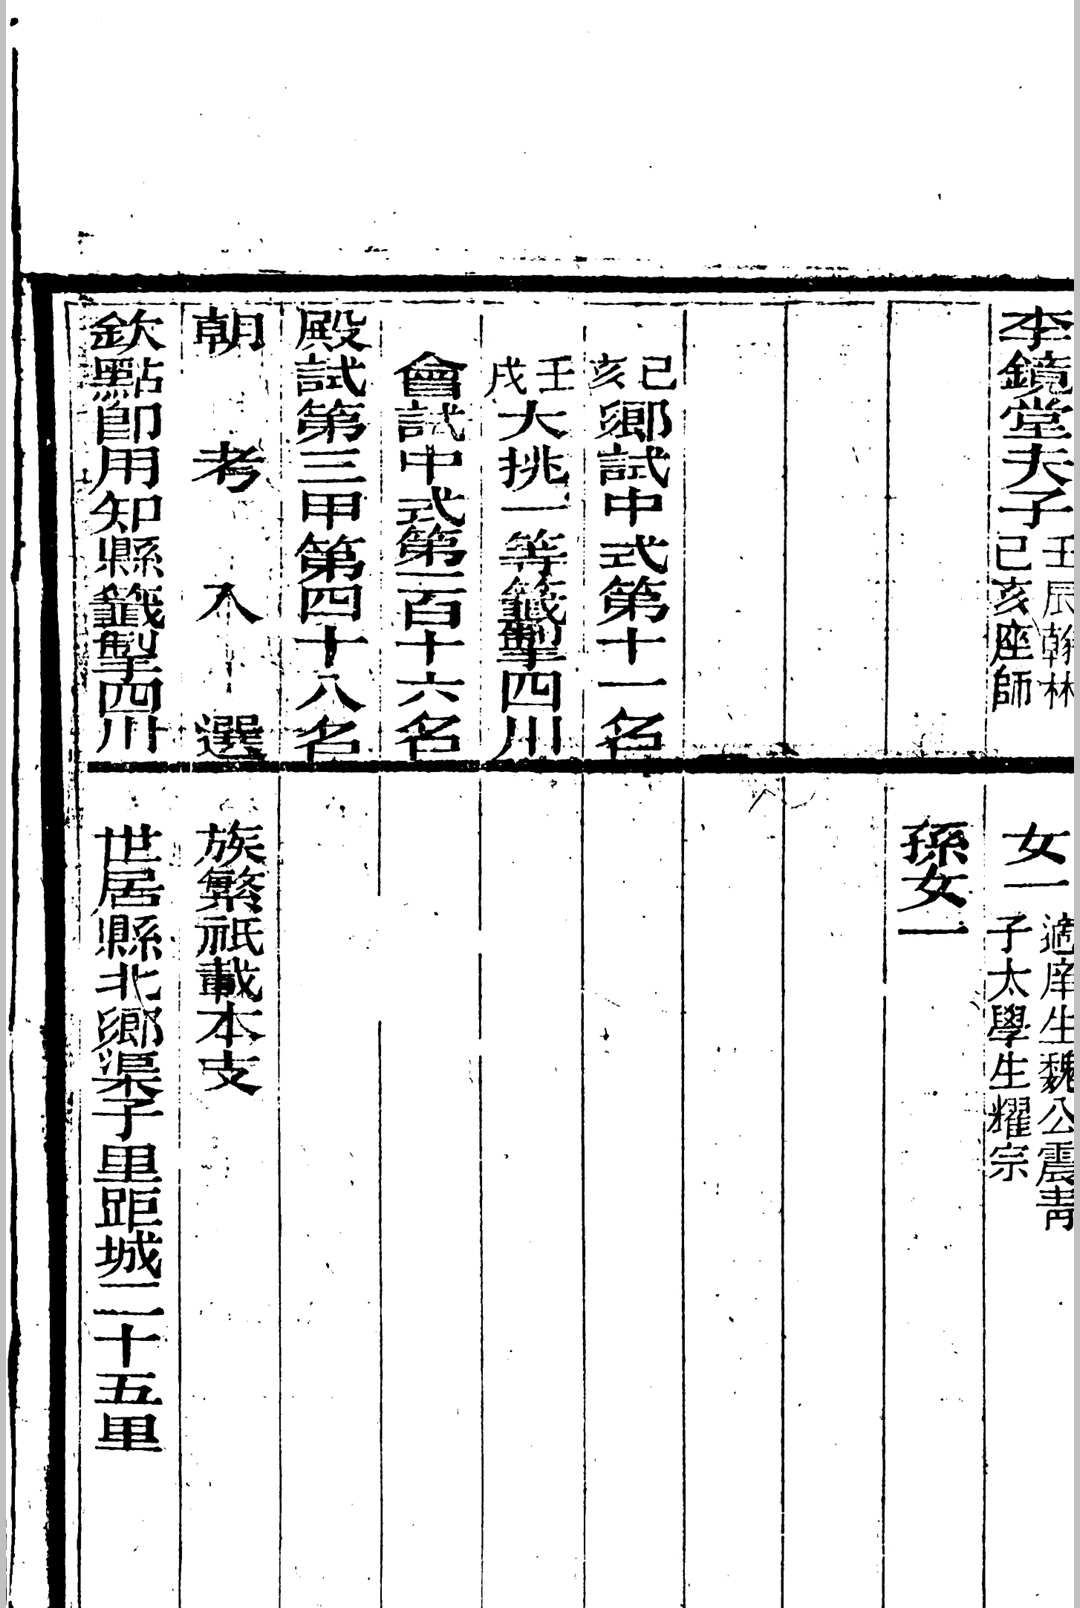 李鏡堂夫子壬辰翰林
己亥座師
己亥鄉試中式第十一名
壬戌大挑一等籤掣四川
會試中式第一百十六名
殿試第三甲第四十八名
朝考入選
欽點即用知縣籤掣四川
女一適庠生魏公震青
子太學生耀宗
孫女一
族繁祇載本支
世居縣北鄉渠子里距城二十五里